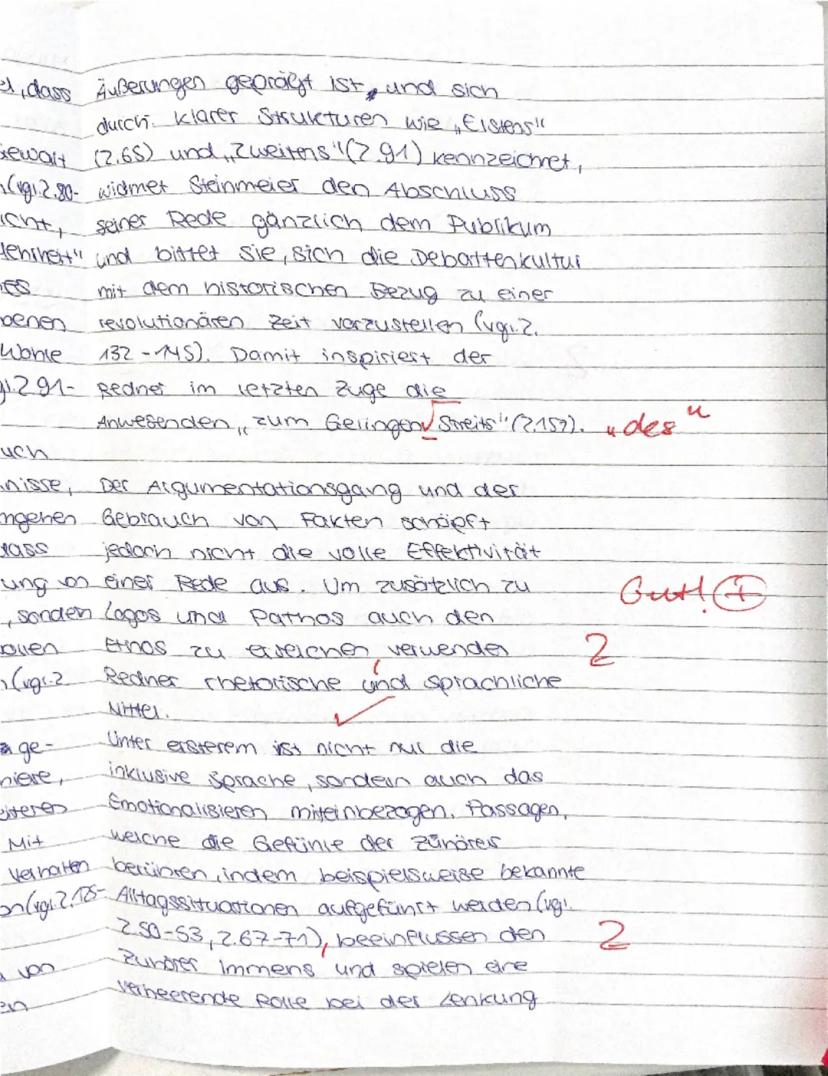 el, dass
Äußerungen geprägt ist, und sich
durch klarer Strukturen wie „Erstens"
(Z.65) und „Zweitens" (Z.91) kennzeichnet,
(vgl. Z.80-
widmet Steinmeier den Abschluss
icht,
seiner Rede gänzlich dem Publikum
und bittet sie, sich die Debattenkultur
es
mit dem historischen Bezug zu einer
benen
revolutionären Zeit vorzustellen (vgl. Z.
132-145). Damit inspiriert der
Z.91-
Redner im letzten Zuge die
Anwesenden „zum Gelingen Streits" (Z.152). „des"
uch
nisse,
Der Argumentationsgang und der
ngenen
Gebrauch von Fakten schöpft
dass
jedoch nicht die volle Effektivität
ung von
einer Rede aus. Um zusätzlich zu
Gut! +
, sondern
Logos und Pathos auch den
ollen
Ethos zu erreichen verwendet
2
(vgl. Z
Redner rhetorische und sprachliche
Mittel.
ge-
Unter ersterem ist nicht nur die
niere,
inklusive Sprache, sondern auch das
eiteren
Emotionalisieren miteinbezogen. Passagen,
Mit
welche die Gefühle der Zuhörer
Verhalten
berühren, indem beispielsweise bekannte
on (vgl. Z.125-
Alltagssituationen aufgeführt werden (vgl.
Z.50-53, Z.67-71), beeinflussen den
2
von
Zuhörer immens und spielen eine
en
verheerende Rolle bei der Lenkung